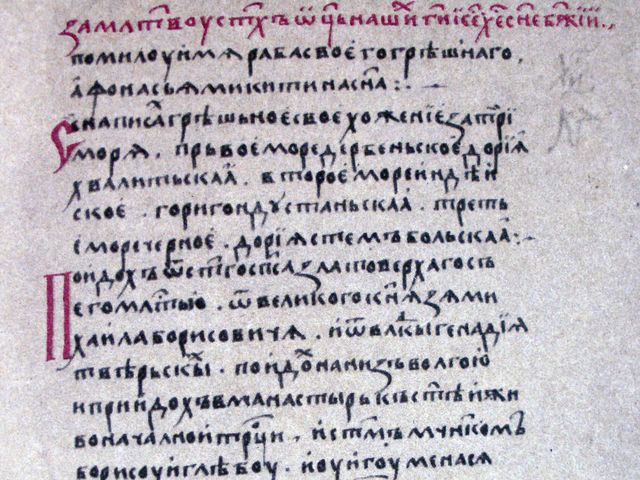 за млтвоу стхъ ѿць нашиⷯ ги іс хе сне бжїи,
помилоуи мѧ раба своего грѣшнаго,
афонасьѧ микитина сна:
Снаписаⷯ грѣшьное свое хоженїе за три
морѧ, прьвое море дербеньское дорїа
хвалитьскаа, второе море индѣи
ское, гори гондустаньскаа, треть
е море черное, дорїа стемъбольскаа:
Поидохъ ѿ стго спса златоверхаго с ѣ
его млтью, ѿ великого кнѧзѧ ми
хаила борисовичѧ, и ѿ влкы генадїа
тверьскⷪы, поидоⷯ на низъ волгою
и прїидохъ в манастырь къ стѣи жи
воначалнои трци, и стмъ мчнкомъ
борисоу и глѣбоу, и оу игоумена сѧ